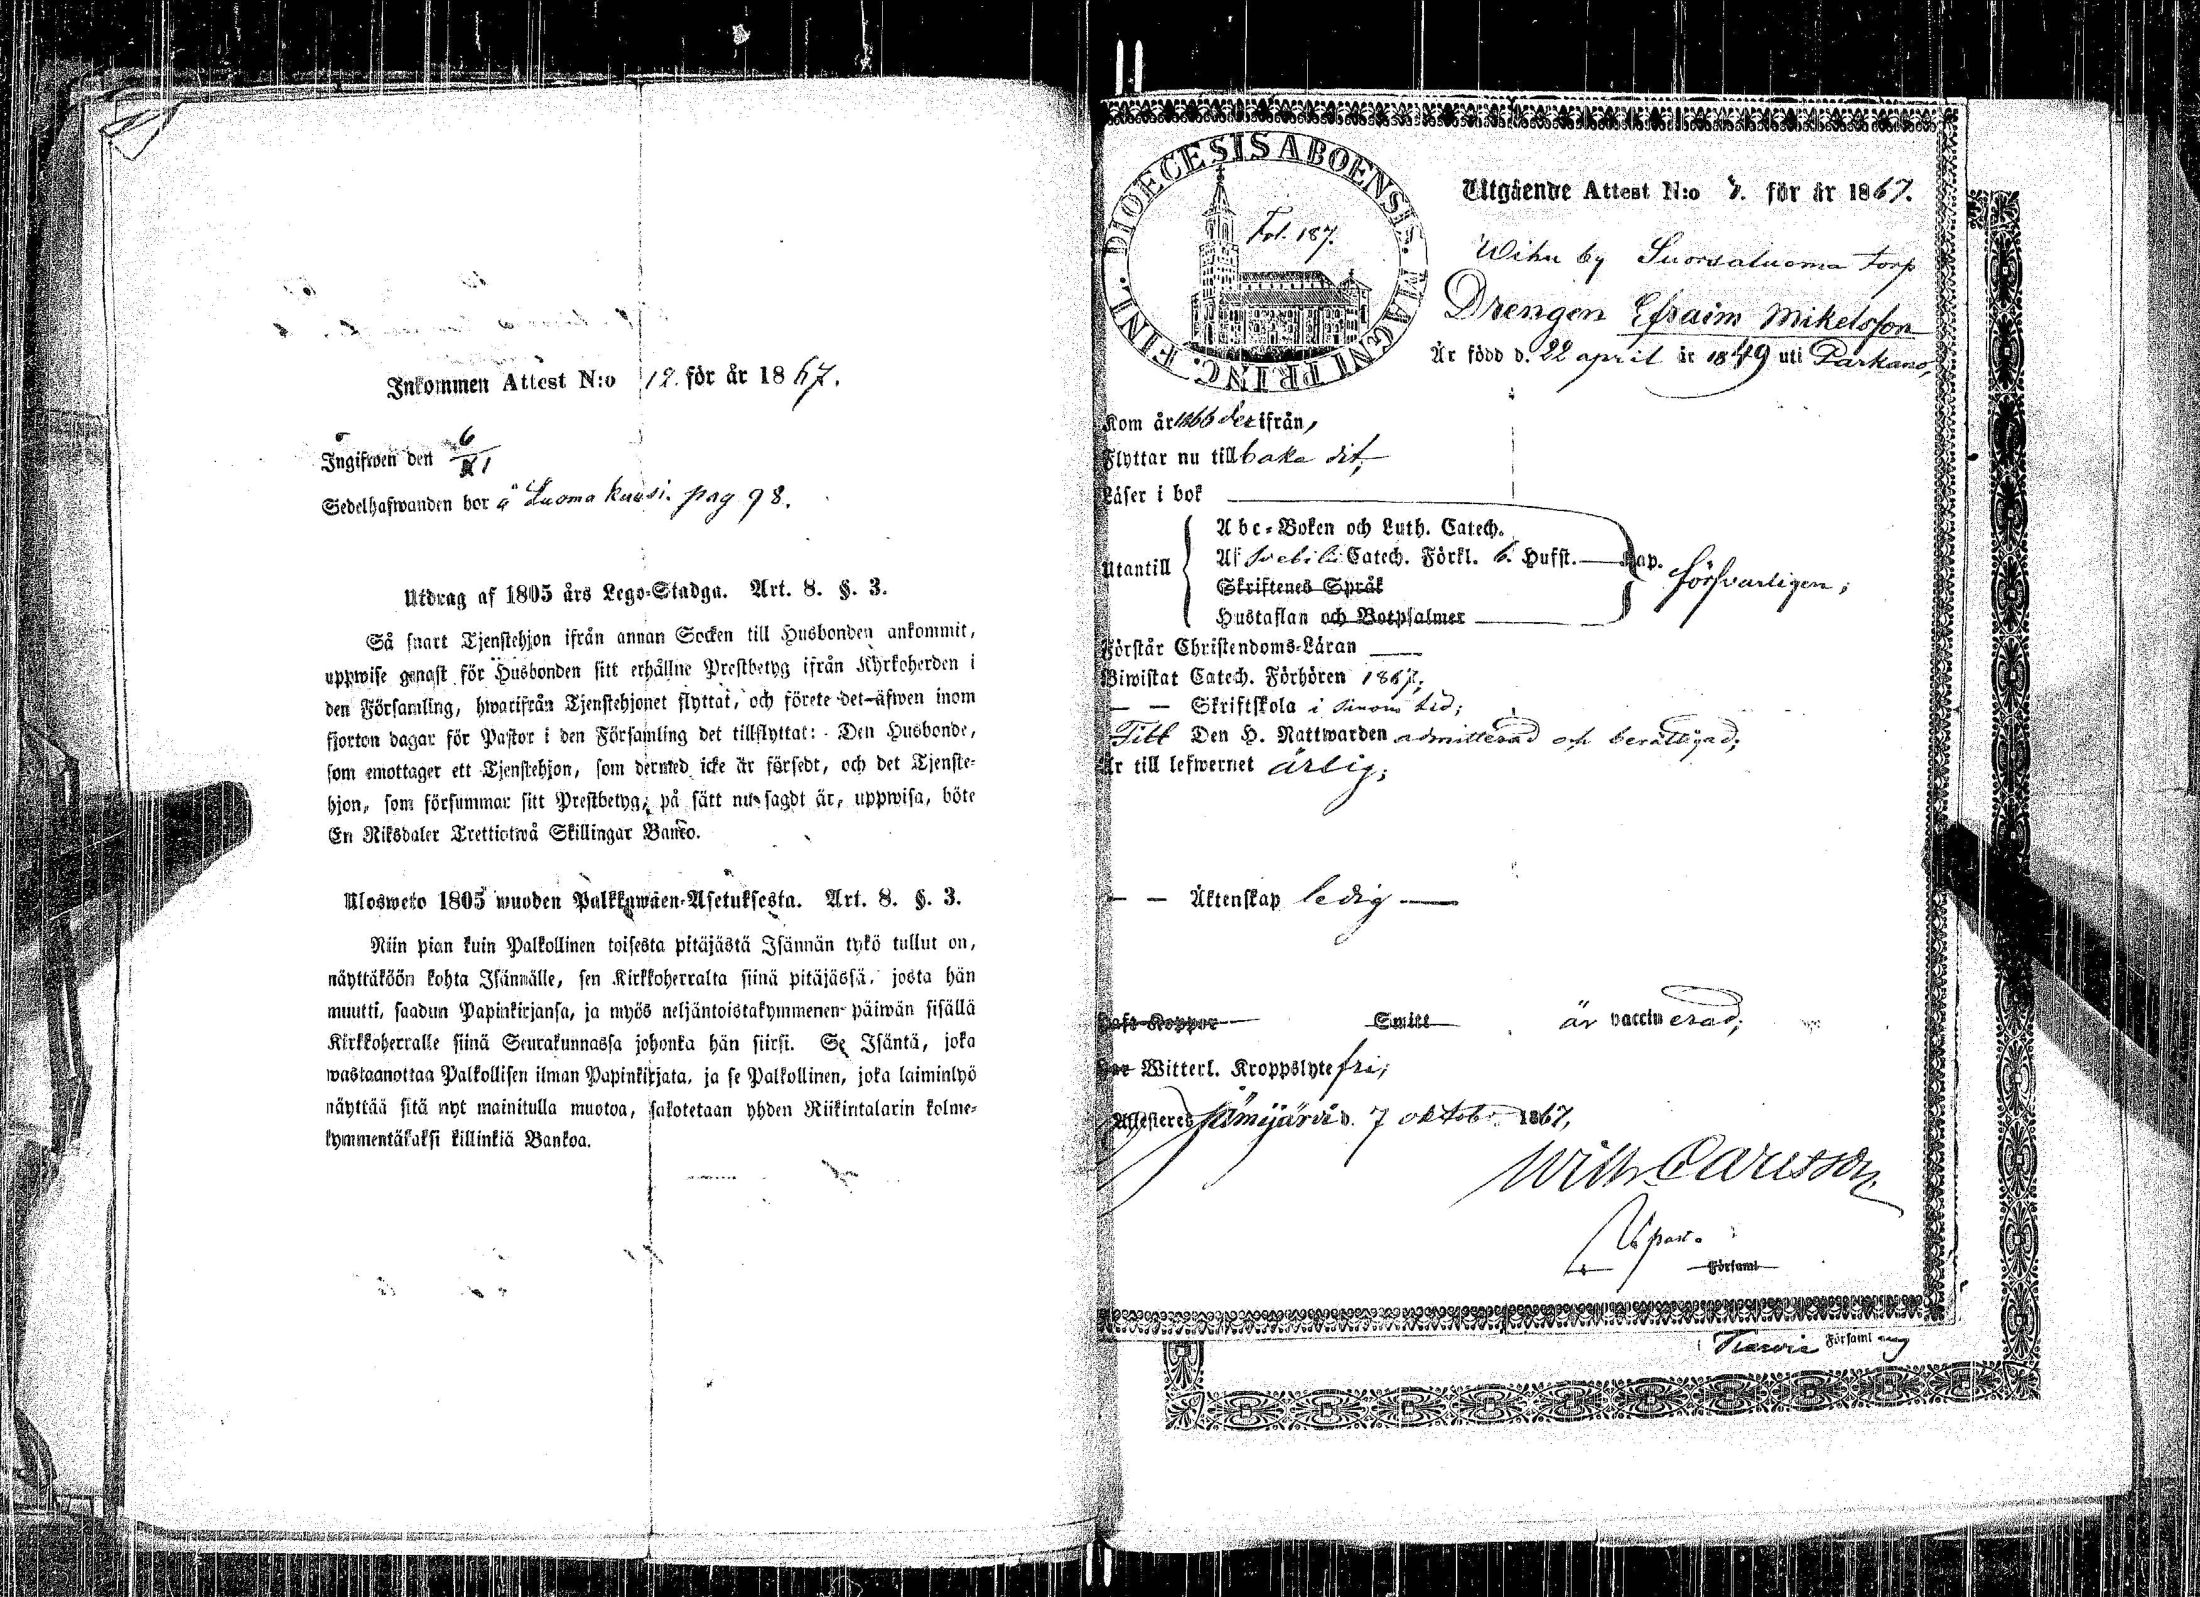 Inkommen Attest N:o 12. för år 1867.
Ingifwen den 6/XI
Sedelhafwanden bor å Luomakuusi. pag 98.
Utdrag af 1805 års Lego-Stadga. Art. 8. §. 3.
Så snart Tjenstehjon ifrån annan Socken till Husbonden ankommit,
uppwise genast för Husbonden sitt erhållne Prestbetyg ifrån Kyrkoherden i
den Församling, hwarifrån Tjenstehjonet flyttat, och förete det äfwen inom
fjorton dagar för Pastor i den Församling det tillflyttat: Den Husbonde,
som emottager ett Tjenstehjon, som dermed icke är försedt, och det Tjenste-
hjon, som försummar sitt Prestbetyg, på sätt nu sagdt är, uppwisa, böte
En Riksdaler Trettiotwå Skillingar Banco.
Ulosweto 1805 wuoden Palkkawäen-Asetuksesta. Art. 8. §. 3.
Niin pian kuin Palkollinen toisesta pitäjästä Isännän tykö tullut on,
näyttäköön kohta Isännälle, sen Kirkkoherralta siinä pitäjässä, josta hän
muutti, saadun Papinkirjansa, ja myös neljäntoistakymmenen päiwän sisällä
Kirkkoherralle siinä Seurakunnassa johonka hän siirsi. Se Isäntä, joka
wastaanottaa Palkollisen ilman Papinkirjata, ja se Palkollinen, joka laiminlyö
näyttää sitä nyt mainitulla muotoa, sakotetaan yhden Riikintalarin kolme-
kymmentäkaksi killinkiä Bankoa.
DIOECESIS ABOENSIS. MAGNI PRINC. FINL.
Fol. 187.
Utgående Attest N:o för år 1867.
Wihu by Suorsaluoma torp
Drengen Efraim Mikelsson
Är född d. 22 april år 1849 uti Parkano,
Kom år 1866 derifrån,
Flyttar nu tillbaka dit,
Läser i bok
Abc-Boken och Luth. Catech.
Utantill Af Svebilii Catech. Förkl. 6. Hufst. Kap. försvarligen;
Skriftenes Språk
Hustaflan och Botpsalmer
Förstår Christendoms-Läran
Biwistat Catech. Förhören 1867;
— — Skriftskola i sinom tid;
Till Den H. Nattwarden admitterad och berättigad;
Är till lefwernet ärlig;
— — Äktenskap ledig
Haft Koppor Smitt är vaccinerad;
Har Witterl. Kroppslyte fri;
Attesteres Jämijärvi d. 7 oktober 1867,
Wilh. Carlsson
V. past.
Församl
i Karvia Församling